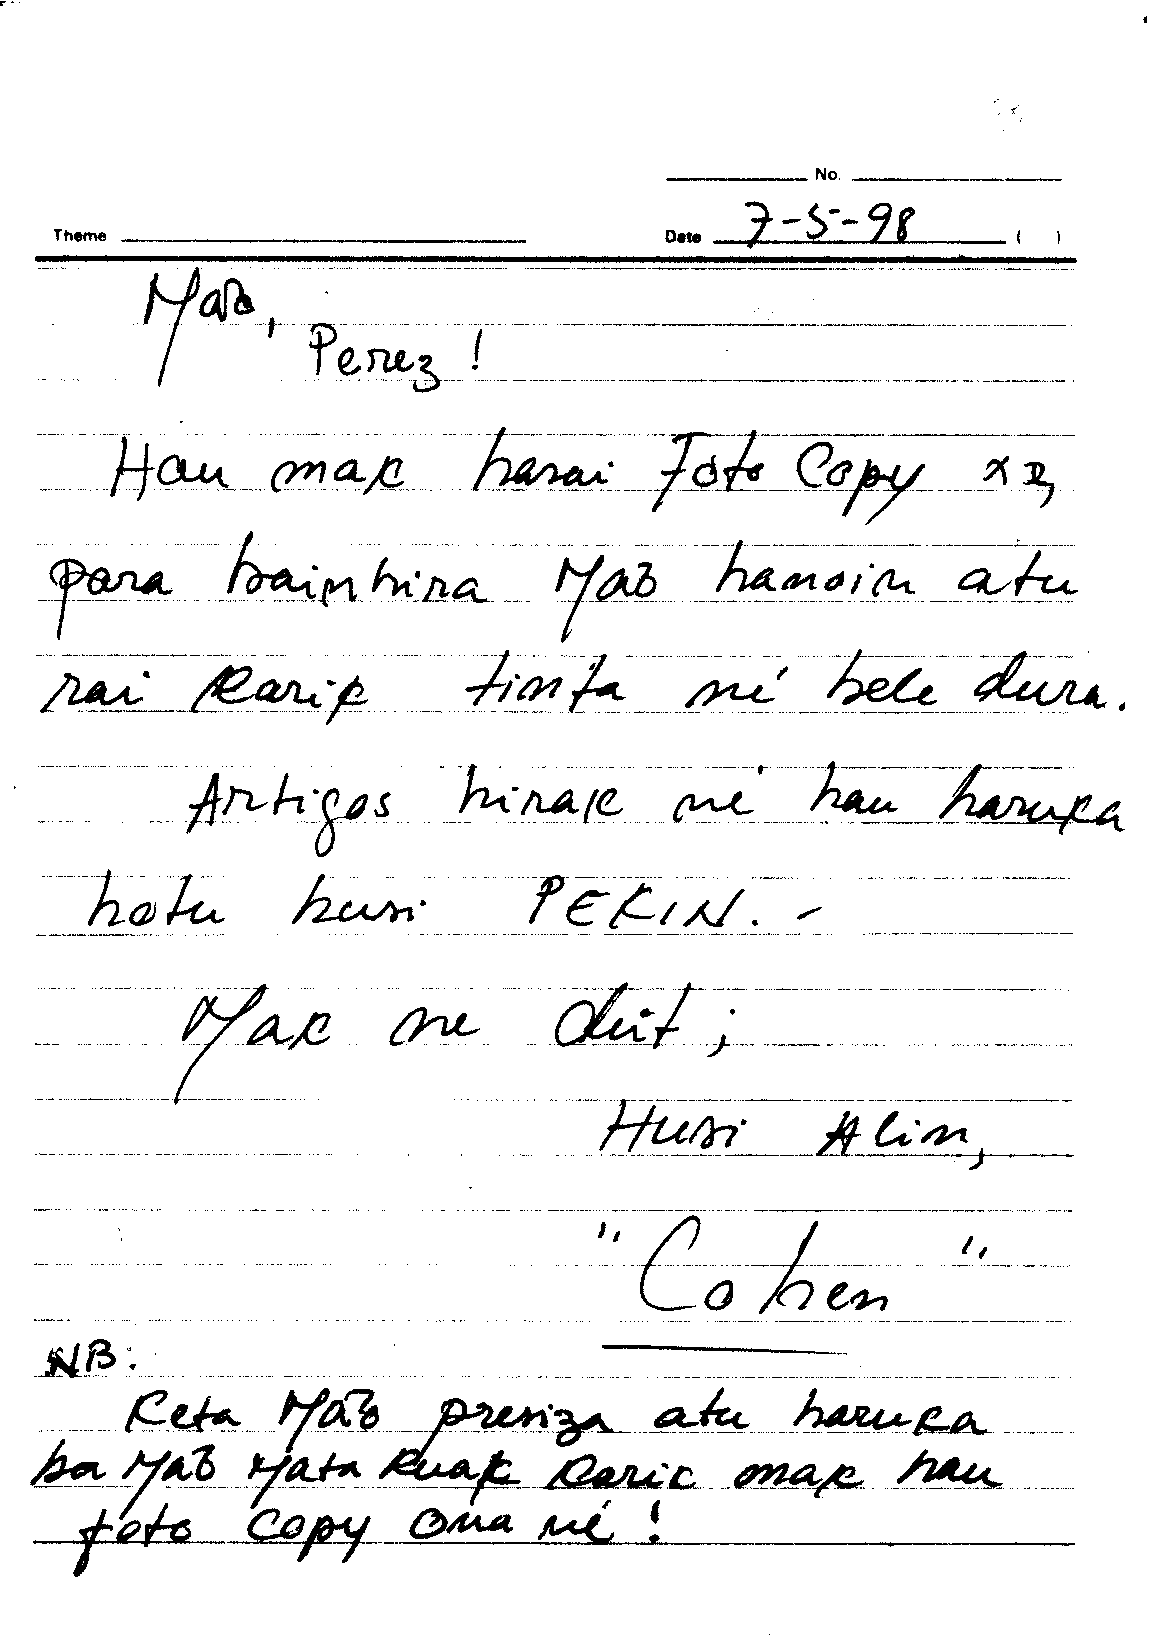 No.
Theme Date 7-5-98 ( )
Maõ,
Perez !
Hau mak harai Foto Copy
para bainhira Maõ hanoin atu
rai Karik tinta né bele dura.
Artigos hirak né hau haruka
hotu husi PEKIN. -
Mak ne deit ;
Husi Alin,
"Cohen"
NB:
Keta Maõ presiza atu haruka
ba Maõ Mata Ruak Karic mak hau
foto copy ona né !